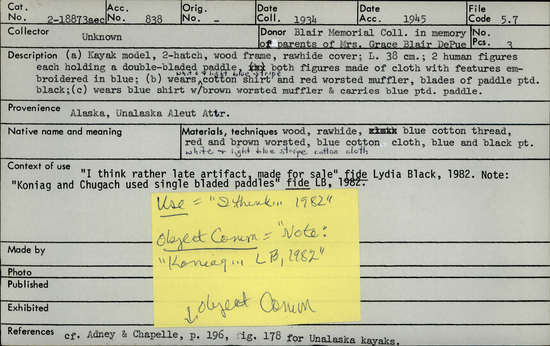 Cat. No. 2-18873aec Acc. No. 838 Orig. No. – Date Coll. 1934 Acc. Date 1945 File Code 5.7
Collector Unknown Donor Blair Memorial Coll. in memory of parents of Mrs. Grace Blair DePue No. Pcs. 3
Description (a) Kayak model, 2-hatch, wood frame, rawhide cover; L. 38 cm.; 2 human figures
each holding a double-bladed paddle, both figures made of cloth with features em-
broidered in blue; (b) wears white & light blue stripe cotton shirt and red worsted muffler, blades of paddle ptd.
black;(c) wears blue shirt w/brown worsted muffler & carries blue ptd. paddle.
Provenience Alaska, Unalaska Aleut Attr.
Native name and meaning Materials, techniques wood, rawhide, blue cotton thread,
red and brown worsted, blue cotton cloth, blue and black pt.
white & light blue stripe cotton cloth
Context of use "I think rather late artifact, made for sale" fide Lydia Black, 1982. Note:
"Koniag and Chugach used single bladed paddles" fide LB, 1982.
Use = "I think... 1982"
Object Comm = "Note:
"Koniag... LB, 1982"
↓object Comm
Made by
Photo
Published
Exhibited
References cf. Adney & Chapelle, p. 196, fig. 178 for Unalaska kayaks.